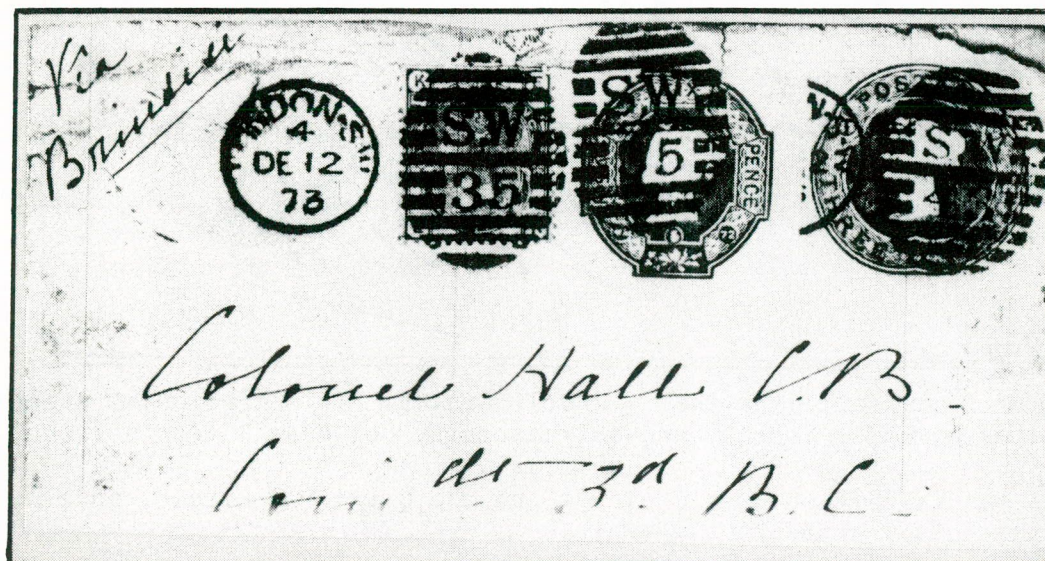 Via
Brindisi
LONDON·S.W
4
DE 12
73
SW
35
SW
5
PENCE
POS
THREE
S
Colonel Hall C.B.
Comdt 3d B.C.